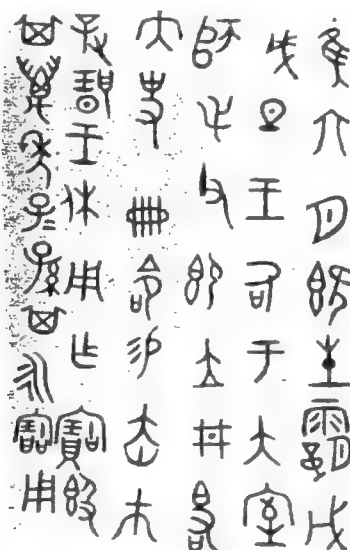 隹六月既生霸戊
戌旦王各于大室
師毛父即立井白右
大史冊命易赤巿
對揚王休用乍寶簋
其萬年子子孫其永寶用